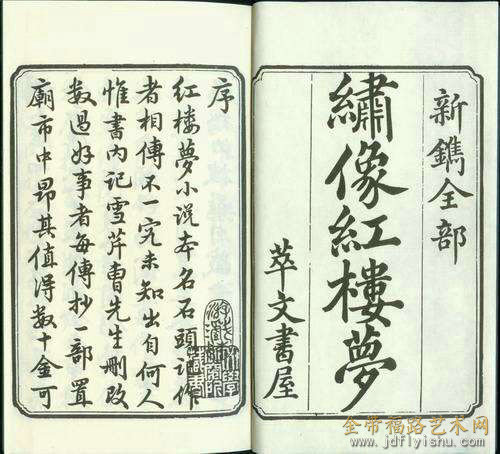 新鐫全部
繡像紅樓夢
萃文書屋
序
紅樓夢小説本名石頭記作
者相傳不一究未知出自何人
惟書内記雪芹曹先生刪改
数過好事者每傳抄一部置
廟市中昻其值得数十金可
金带福路艺术网
www.jdflyishu.com